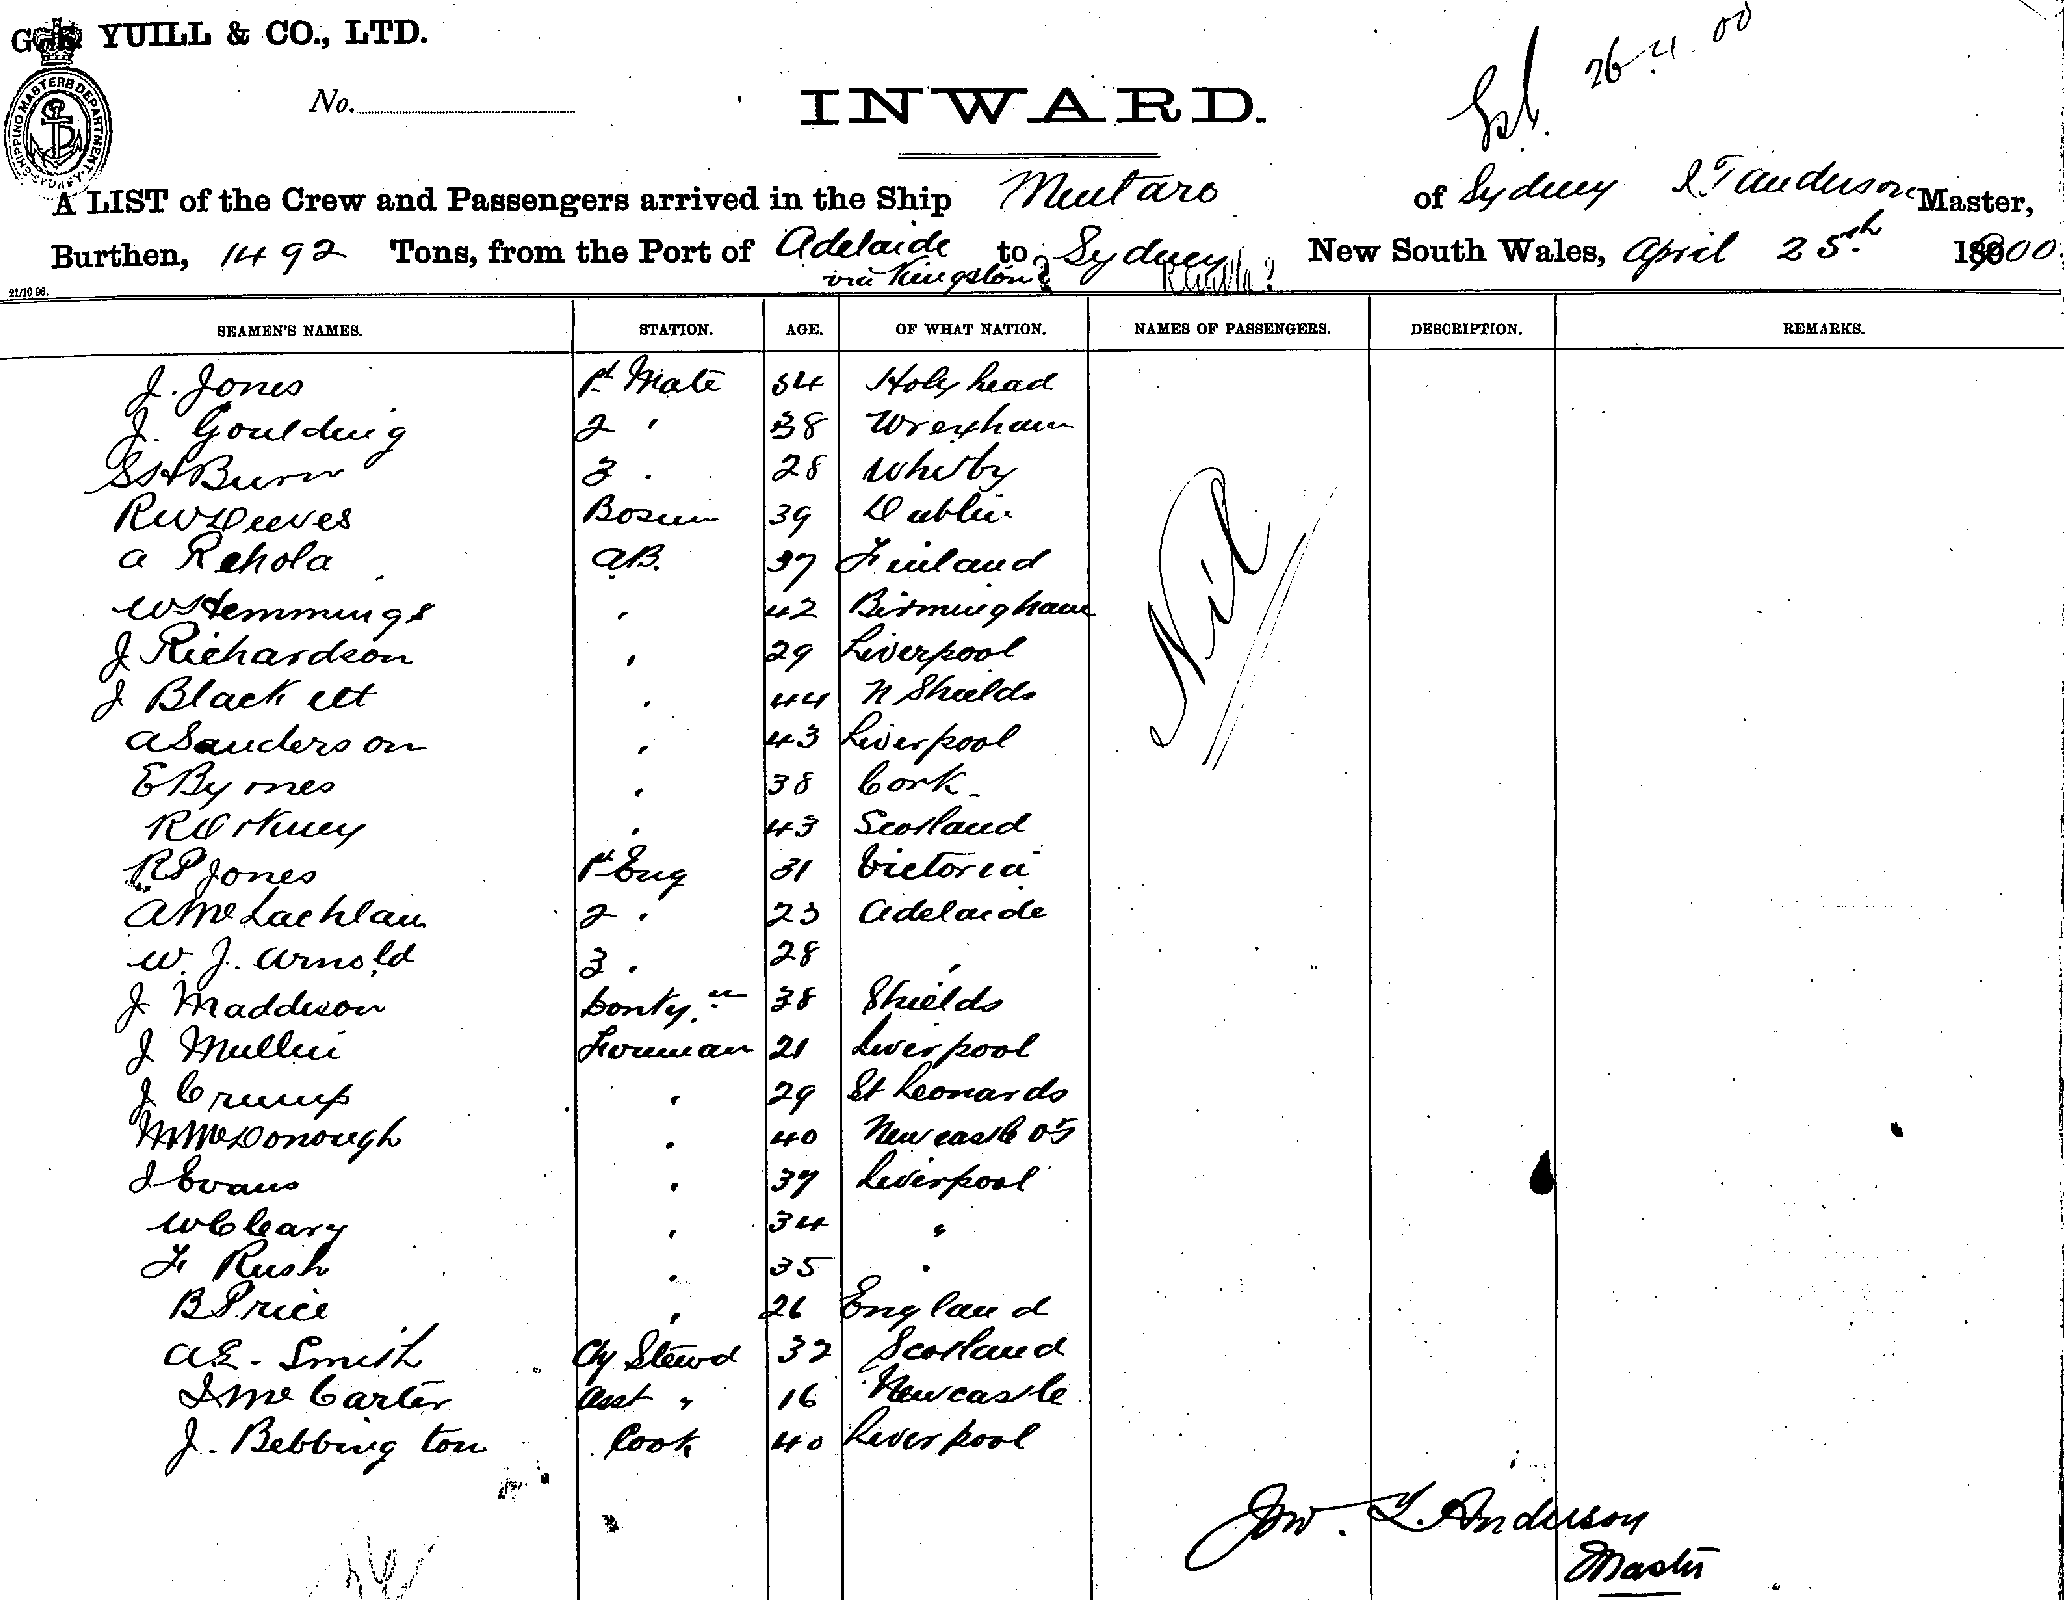 G. S. YUILL & CO., LTD.
26.4.00
No.
INWARD.
SHIPPING MASTERS DEPARTMENT SYDNEY
A LIST of the Crew and Passengers arrived in the Ship Mentaro of Sydney J T Anderson Master,
Burthen, 1492 Tons, from the Port of Adelaide to Sydney New South Wales, April 25th 1900.
via Kingston
21/10 96.
SEAMEN'S NAMES. STATION. AGE. OF WHAT NATION. NAMES OF PASSENGERS. DESCRIPTION. REMARKS.
J. Jones 1st Mate 54 Holyhead
J. Goulding 2 " 38 Wrexham
S H Burn 3 " 28 Whitby
R W Deeves Bosun 39 Dublin
A Rehola A.B. 37 Finland
W Hemmings " 42 Birmingham
J Richardson " 29 Liverpool
J Blackett " 44 N Shields
A Sanderson " 43 Liverpool
E Byrnes " 38 Cork
R Orkney " 43 Scotland
R P Jones 1st Eng 31 Victoria
A McLachlan 2 " 23 Adelaide
W. J. Arnold 3 " 28 "
J Maddison Donkyman 38 Shields
J Mullin Fireman 21 Liverpool
J Crump " 29 St Leonards
M McDonough " 40 Newcastle
J Evans " 37 Liverpool
W Cleary " 34 "
F Rush " 35 "
B Price " 26 England
A E. Smith Ch Stewd 32 Scotland
J McCarter Asst " 16 Newcastle
J. Bebbington Cook 40 Liverpool
Nil
Jno. T. Anderson
Master